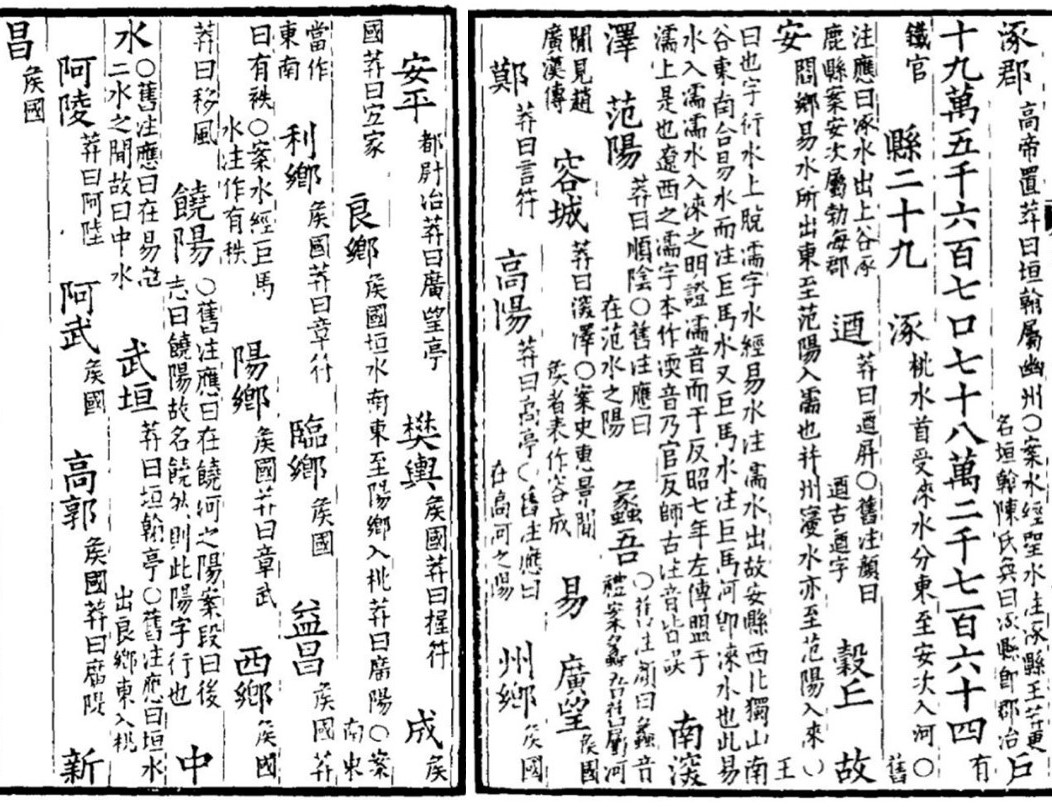 涿郡 高帝置莽曰垣翰屬幽州〇案水經聖水注涿縣王莽更名垣翰陳氏奐曰涿縣即郡治 戶
十九萬五千六百七口七十八萬二千七百六十四 有
鐵官 縣二十九 涿 桃水首受淶水分東至安次入河〇舊
注應曰涿水出上谷涿鹿縣案安次屬勃海郡 遒 莽曰遒屏〇舊注顏曰遒古遒字 穀丘 故
安 閻鄉易水所出東至范陽入濡也幷州寖水亦至范陽入淶〇王
曰也字衍水上脫濡字水經易水注濡水出故安縣西北獨山南
谷東南合易水而注巨馬水又巨馬水注巨馬河即淶水也此易
水入濡濡水入淶之明證濡音而于反昭七年左傳盟于
濡上是也遼西之濡字本作渜音乃官反師古注音皆誤 南深
澤 范陽 莽曰順陰〇舊注應曰在范水之陽 蠡吾 〇舊注顏曰蠡音禮案蠡吾往屬河
閒見趙廣漢傳 容城 莽曰深澤〇案史惠景閒矦者表作容成 易 廣望 矦國
鄚 莽曰言符 高陽 莽曰高亭〇舊注應曰在高河之陽 州鄉 矦國
安平 都尉治莽曰廣望亭 樊輿 矦國莽曰握符 成 矦
國莽曰宜家 良鄉 矦國垣水南東至陽鄉入桃莽曰廣陽〇案南東
當作東南 利鄉 矦國莽曰章符 臨鄉 矦國 益昌 矦國莽
曰有袟〇案水經巨馬水注作有秩 陽鄉 矦國莽曰章武 西鄉 矦國
莽曰移風 饒陽 〇舊注應曰在饒河之陽案段曰後志曰饒陽故名饒然則此陽字衍也 中
水 〇舊注應曰在易滱二水之閒故曰中水 武垣 莽曰垣翰亭〇舊注應曰垣水出良鄉東入桃
阿陵 莽曰阿陸 阿武 矦國 高郭 矦國莽曰廣隄 新
昌 矦國